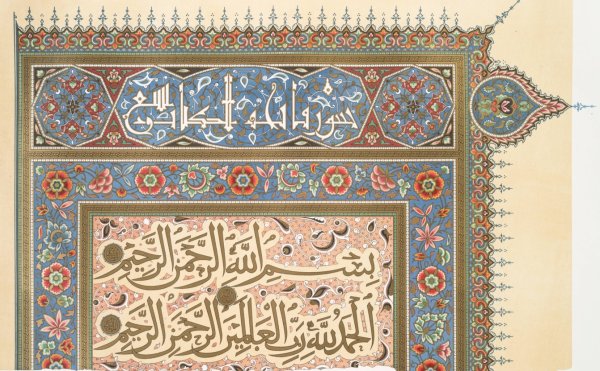 سورة فاتحة الكتاب
بِسْمِ اللَّهِ الرَّحْمَنِ الرَّحِيمِ
اَلْحَمْدُ لِلَّهِ رَبِّ الْعَالَمِينَ الرَّحْمَنِ الرَّحِيمِ